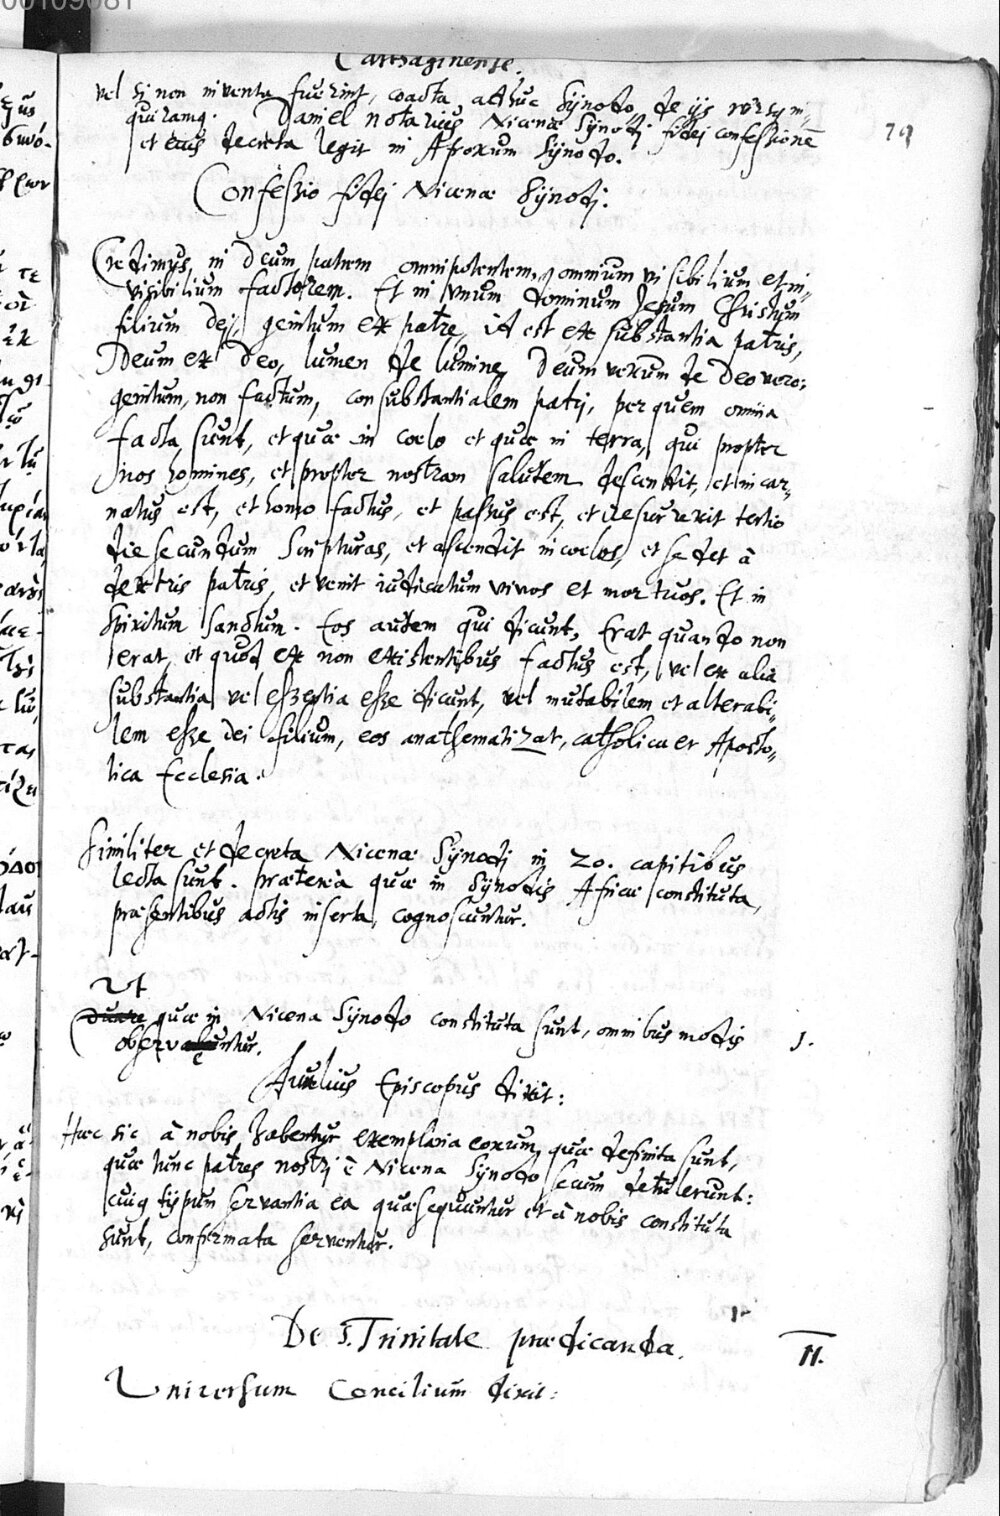 00109081
Carthaginense.
vel si non inventa fuerint, coacta adhuc Synodo de ijs rursum in=
quiramq. Daniel notarius Nicenæ Synodj fidej confessionē
et eius decreta legit in Afrorum Synodo.
79
Confessio fidej Nicenæ Synodj.
Credimus in Deum patrem omnipotentem, omnium visibilium et in=
visibilium factorem. Et in unum dominum Jesum Christum
filium dej, genitum ex patre, id est ex substantia patris,
Deum ex Deo, lumen de lumine, Deum verum de Deo vero:
genitum, non factum, consubstantialem patrj, per quem omnia
facta sunt, et quæ in coelo et quæ in terra, qui propter
nos homines, et propter nostram salutem descendit, et incar=
natus est, et homo factus, et passus est, et resurrexit tertio
die secundum Scripturas, et ascendit in coelos, et sedet à
dextris patris, et venit iudicatum vivos et mortuos. Et in
Spiritum Sanctum. Eos autem qui dicunt, Erat quando non
erat, et quod ex non existentibus factus est, vel ex alia
substantia vel essentia esse dicunt, vel mutabilem et alterabi=
lem esse dei filium, eos anathematizat, catholica et Aposto=
lica Ecclesia.
Similiter et decreta Nicenæ Synodj in 20. capitibus
lecta sunt. præterea quæ in Synodis Africæ constituta,
præsentibus actis inserta, cognoscuntur.
Ut
quæ in Nicena Synodo constituta sunt, omnibus modis
observentur.
1.
Aurelius Episcopus dixit:
Hæc sic à nobis habentur exemplaria eorum, quæ definita sunt,
quæ tunc patres nostrj è Nicæna Synodo secum detulerunt:
cuiq typum servantia ea quæ sequuntur et à nobis constituta
sunt, confirmata serventur.
De S. Trinitate prædicanda.
II.
Universum Concilium dixit: